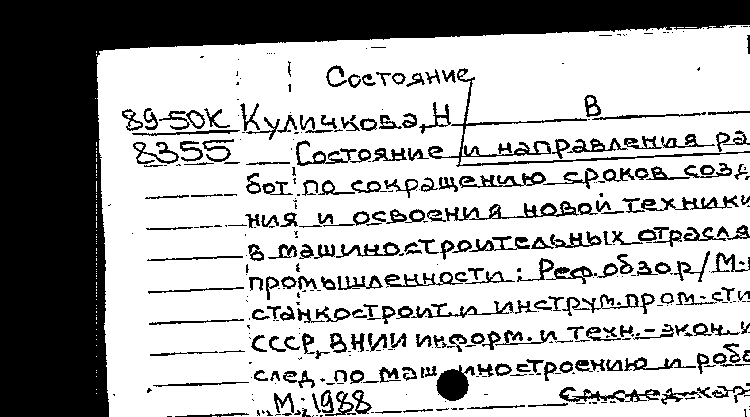 Состояние
89-50К Куличкова, Н В
8355 Состояние и направления ра
бот по сокращению сроков созд
ния и освоения новой техники
в машиностроительных отрасля
промышленности: Реф. обзор / М-
станкостроит. и инструм. пром-сти
СССР, ВНИИ информ. и техн.-экон. и
след. по машиностроению и робо
М., 1988 См. след. кар